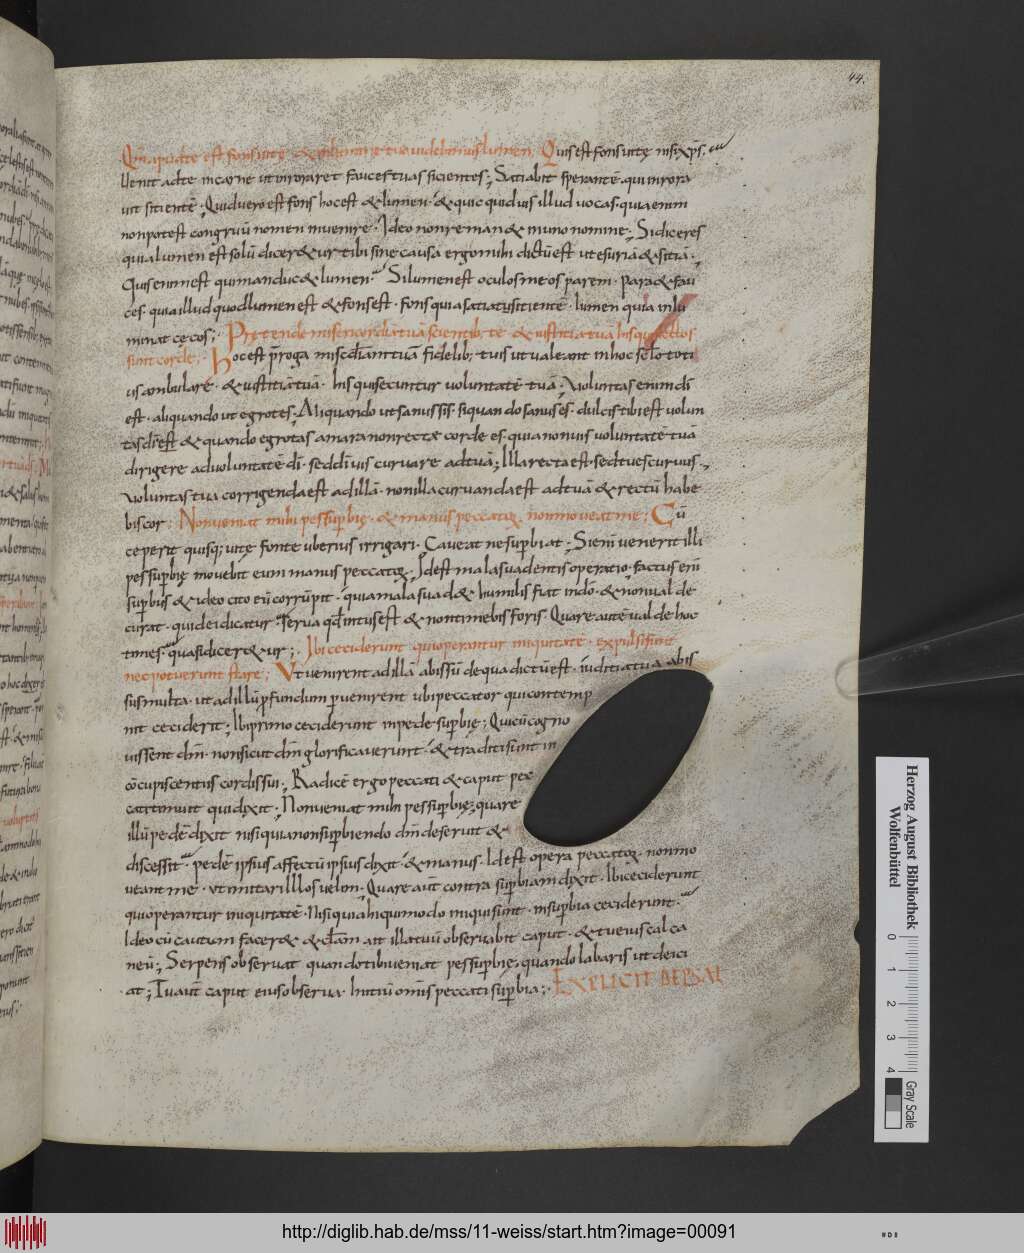 44.
Qm̄ apud te est fons uitę & in lumine tuo uidebimus lumen. Quis est fons uitę nisi xp̄s.
Uenit ad te in carne ut inroraret fauces tuas sicientes; Satiabit sperantē. qui inrora
uit sitientē; Quid uero est fons hoc est & lumen. & quic quid uis illud uocas. quia enim
non potest congruū nomen inuenire. Ideo non reman& in uno nomine; Si diceres
quia lumen est solū dicer&ur tibi sine causa ergo mihi dictū est ut esuria & sitia.
Quis enim est qui manduc& lumen. Si lumen est oculos meos parem. para& fau
ces. quia illud quod lumen est & fons est. fons quia satiat sitientē. lumen quia inlu
minat cęcos; Prętende misericordiā tuā scientib; te & iustitiā tuā his qui recto
sunt corde; Hoc est p̄roga misc̄diam tuā fidelib; tuis ut ualeant in hoc sc̄lo toti
uis ambulare. & iustitiā tuā. his qui secuntur uoluntatē tuā; Uoluntas enim dī
est. aliquando ut egrotes; Aliquando ut sanus sis. si quando sanus es. dulcis tibi est uolun
tas dī est & quando egrotas amara non rectæ corde es. quia non uis uoluntatē tuā
dirigere ad uoluntatē dī. sed dī uis curuare ad tuā; Illa recta est. sed tu es curuus.
Uoluntas tua corrigenda est ad illā. non illa curuanda est ad tuā & rectū habe
bis cor; Non ueniat mihi pes supbię. & manus peccatoꝝ non moueat me; Cū
ceperit quisq; uitę fonte uberius irrigari. Caueat ne supbiat; Si enī uenerit illi
pes supbię mouebit eum manus peccatoꝝ. Id est mala suadentis operatio; factus enī
supbus & ideo cito eū corrūpit. qui a mala suad& humilis fiat in dō. & non ual de
curat. quid ei dicatur. Serua qd̄ intus est & non timebis foris. Quare autē ual de hoc
times. quasi dicer&ur; Ibi ceciderunt qui operantur iniquitatē. expulsi sunt
nec potuerunt stare; Ut uenirent ad illā abissū de qua dictū est. iudicia tua abis
sus multa. ut ad illū pfundum puenirent ubi peccator qui contemp
nit ceciderit; Ibi primo ceciderunt in pede supbię; Qui cū cogno
uissent dm̄. non sicut dm̄ glorificauerunt. & traditi sunt in
cōcupiscentiis cordis sui; Radicē ergo peccati & caput pec
cati timuit qui dixit. Non ueniat mihi pes supbię; quare
illū pedē dixit nisi quia non supbiendo dm̄ deseruit &
discessit. pedē ipsius affectū ipsius dixit. & manus. Id est opera peccatoꝝ. non mo
ueant me. ut imitari illos uelim; Quare aut̄ contra supbiam dixit. Ibi ceciderunt
qui operantur iniquitatē. Nisi quia hi qui modo iniqui sunt. in supbia ceciderunt.
Ideo cū cautum facer& & c̄łam ait illa tuū obseruabit caput. & tu eius calca
neū; Serpens obseruat quando tibi ueniat pes supbię; quando labaris ut deici
at; Tu aut̄ caput eius obserua. Initiū om̄is peccati supbia;
Herzog August Bibliothek
Wolfenbüttel
0 1 2 3 4
Gray Scale
http://diglib.hab.de/mss/11-weiss/start.htm?image=00091